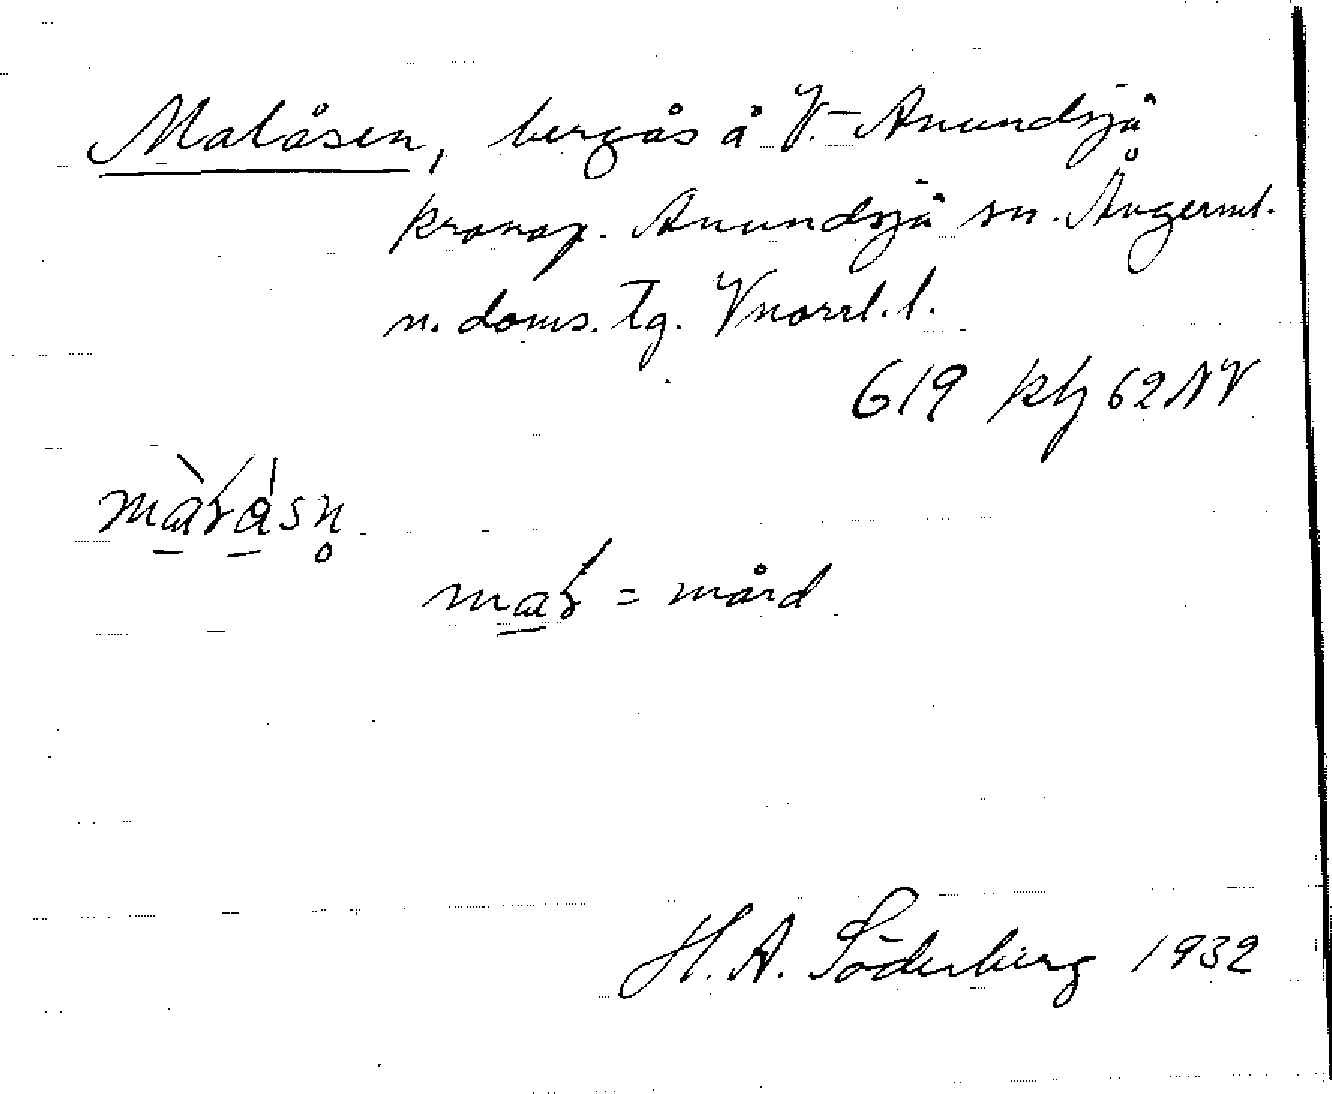 Malåsen, bergås å V.-Anundsjö
kronop. Anundsjö sn. Ångerml.
n. doms. tg. Vnorrl. l.
619 kbj 62 NV
mar = mård
H. A. Söderberg 1932